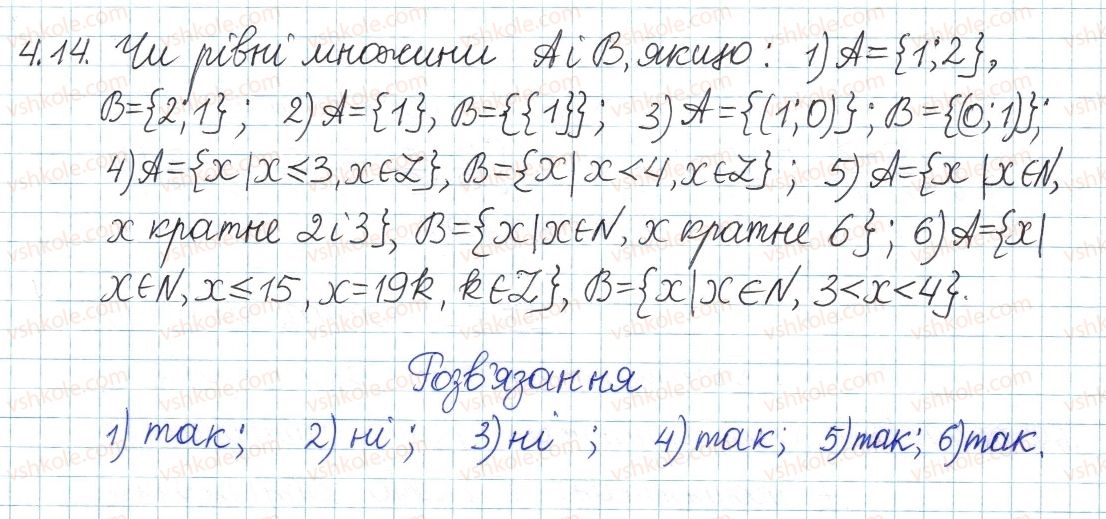 4.14. Чи рівні множини A і B, якщо: 1) A={1;2},
B={2;1}; 2) A={1}, B={{1}}; 3) A={(1;0)}; B={(0;1)};
4) A={x|x≤3, x∈Z}, B={x|x<4, x∈Z}; 5) A={x|x∈N,
x кратне 2 і 3}, B={x|x∈N, x кратне 6}; 6) A={x|
x∈N, x≤15, x=19k, k∈Z}, B={x|x∈N, 3<x<4}.
Розв'язання
1) так; 2) ні; 3) ні; 4) так; 5) так; 6) так.
vshkole.com